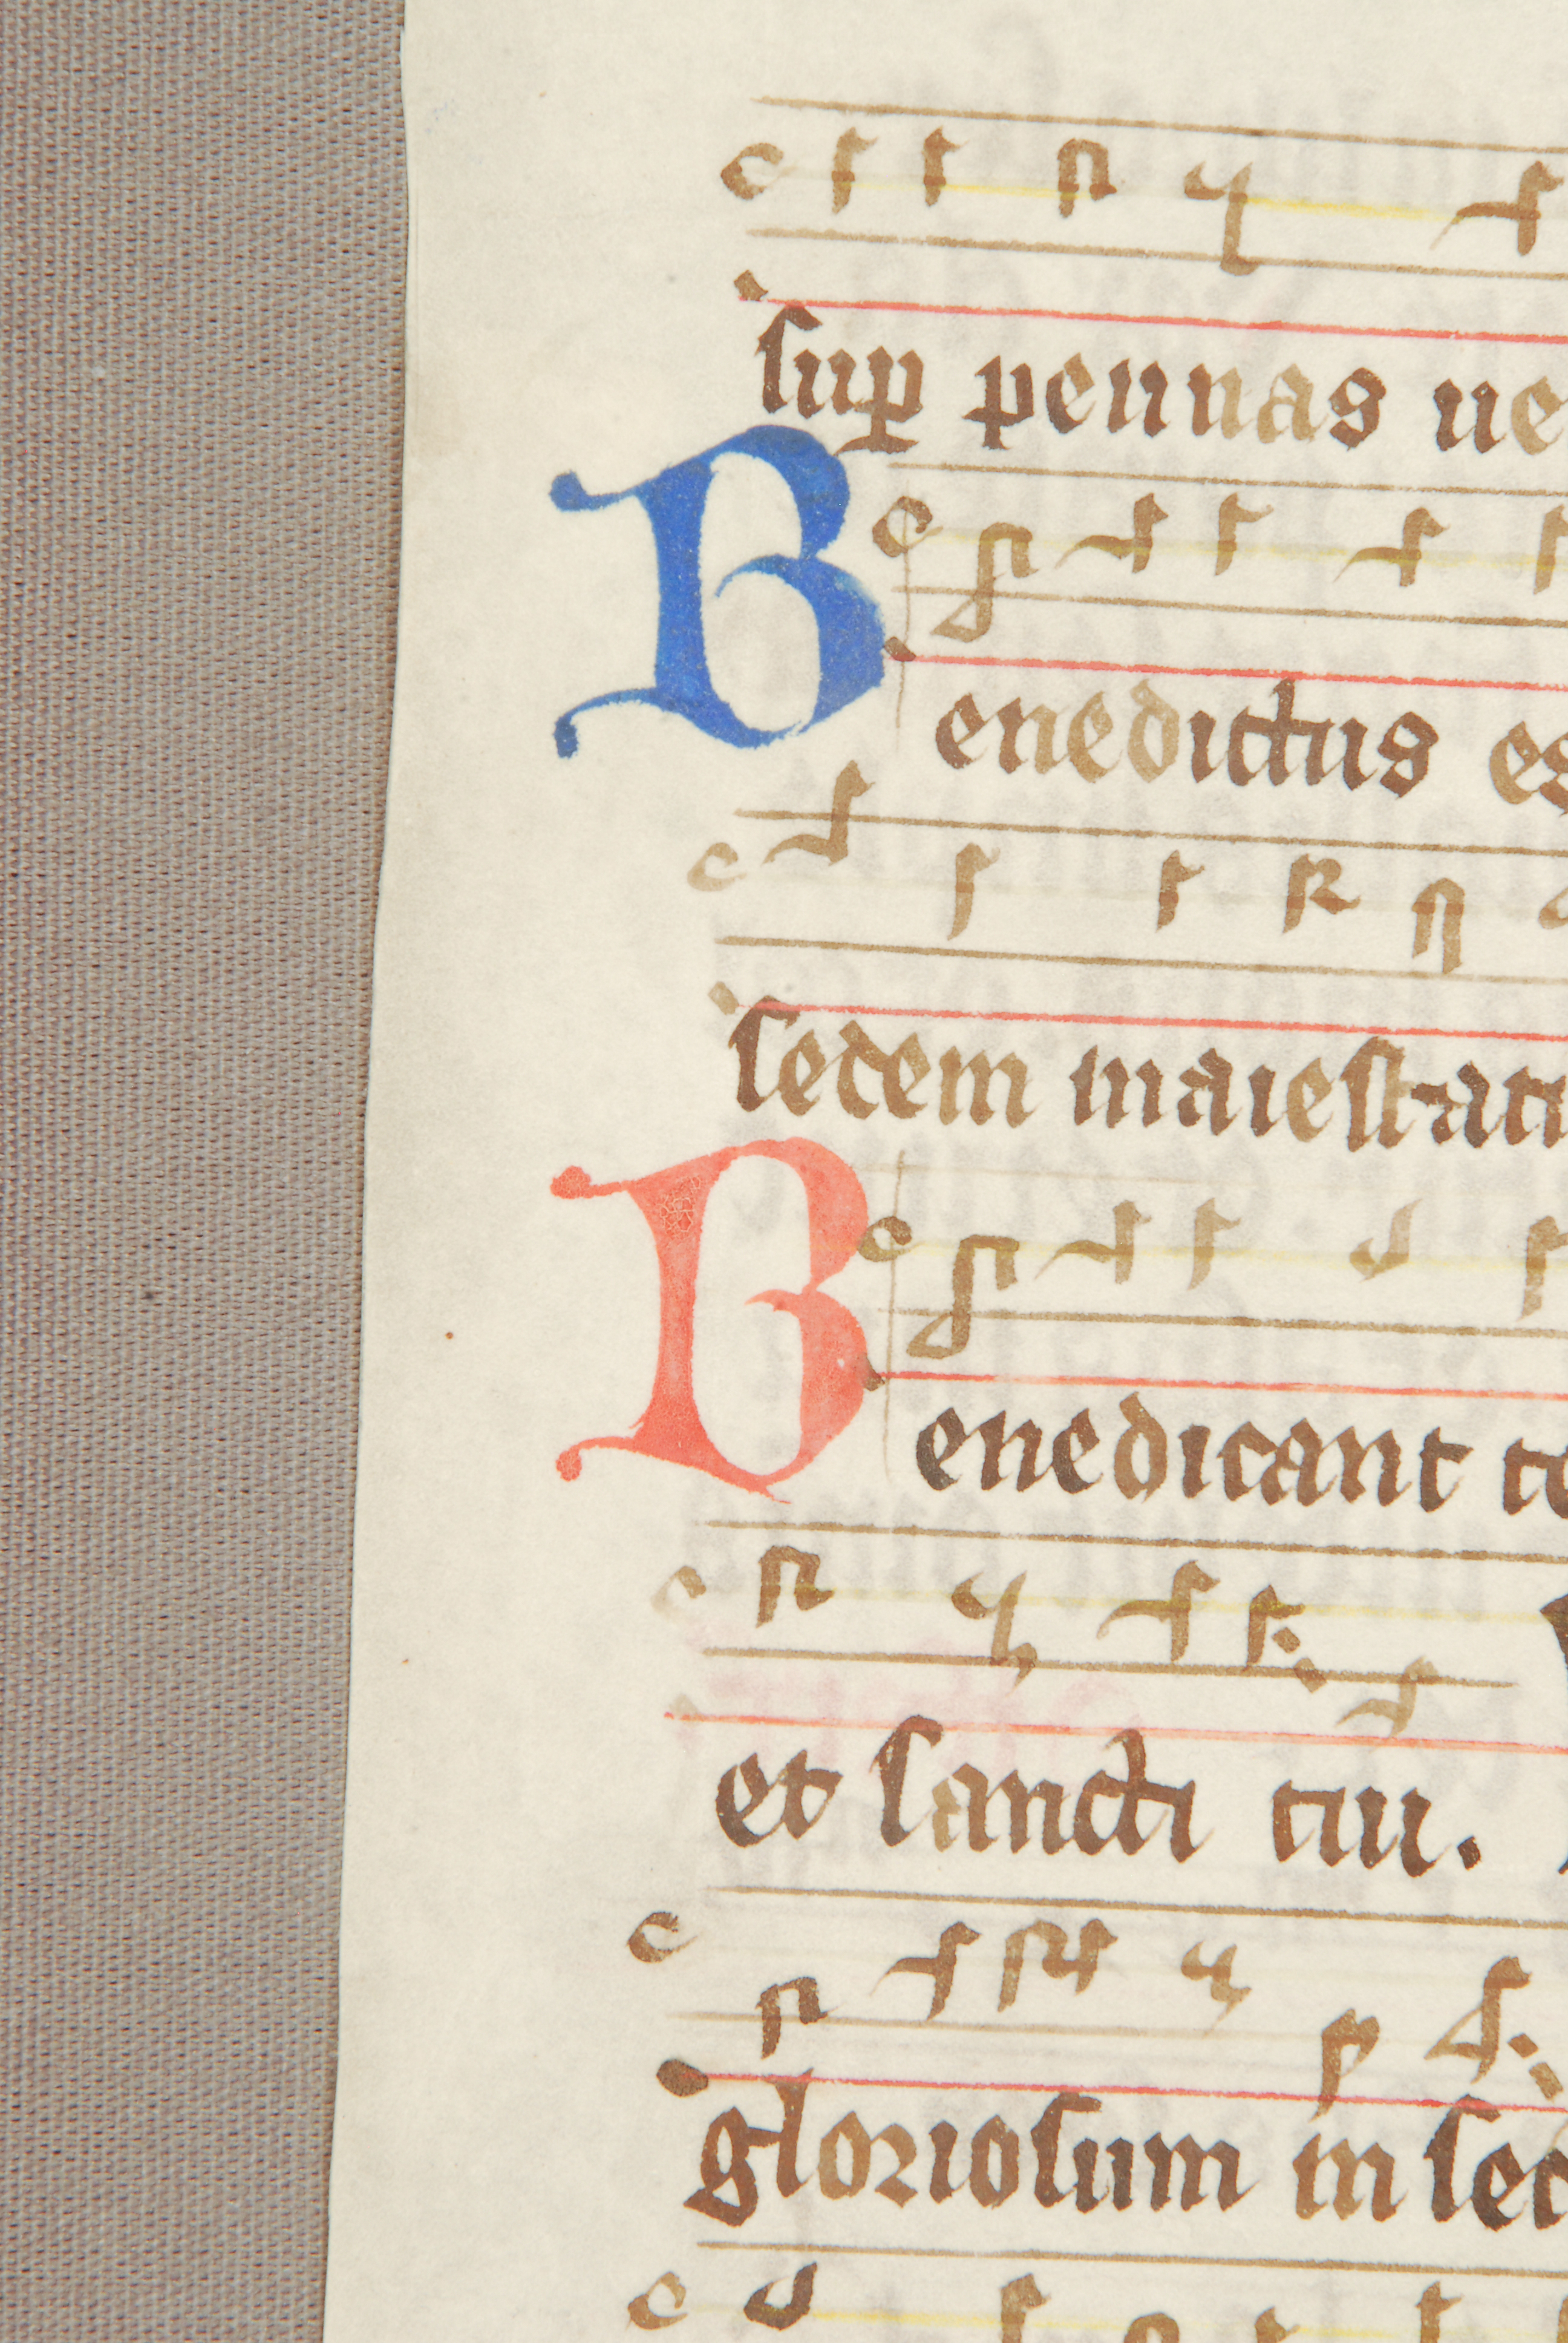 sup̲ pennas ue
Benedictus es
sedem maiestati
Benedicant te
et sancti tui.
gloriosum in sed